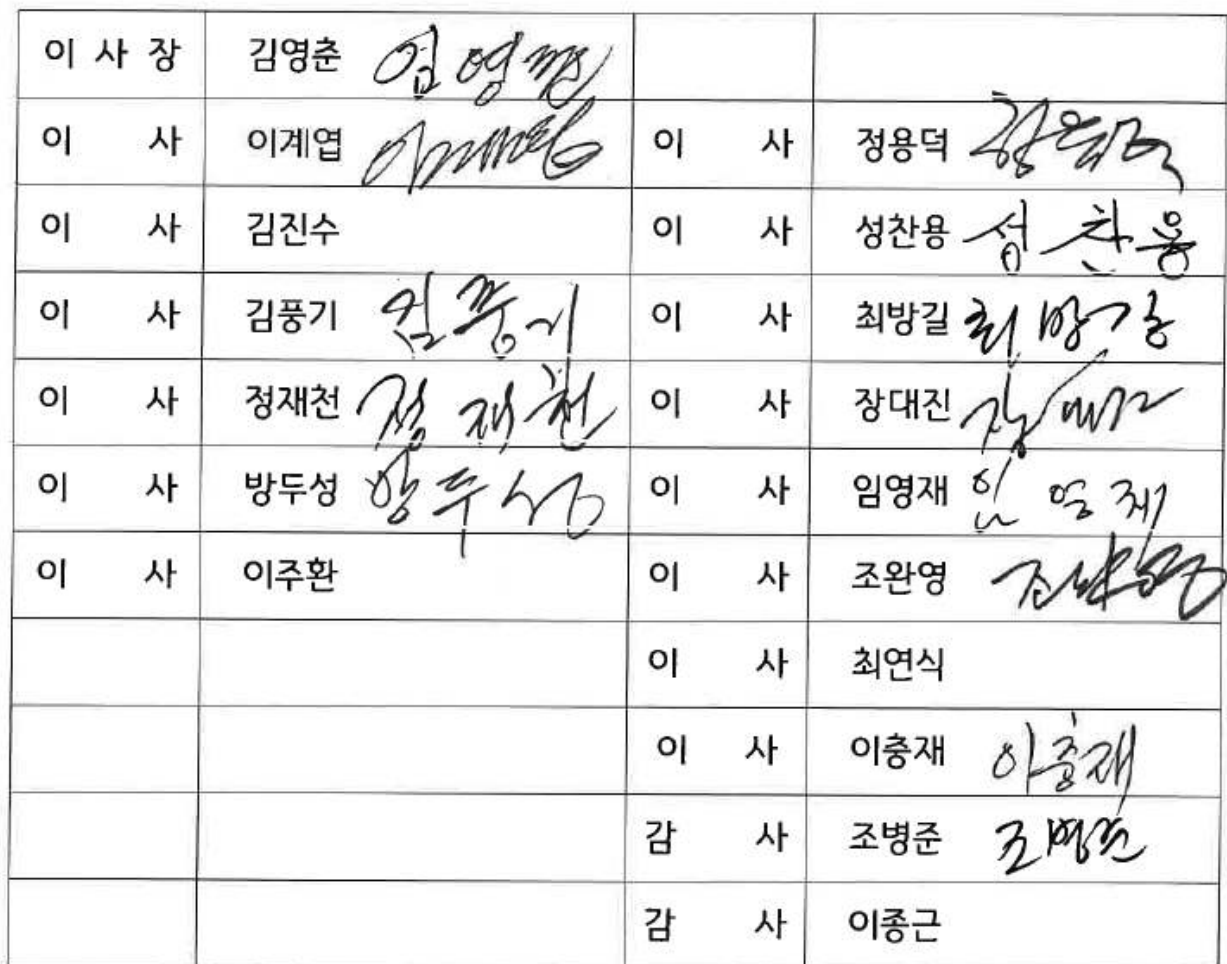 이 사 장 김영춘 김영춘
이 사 이계엽 이 사 정용덕 정용덕
이 사 김진수 이 사 성찬용 성찬용
이 사 김풍기 김풍기 이 사 최방길 최방길
이 사 정재천 정재천 이 사 장대진 장대진
이 사 방두성 방두성 이 사 임영재 임영재
이 사 이주환 이 사 조완영 조완영
이 사 최연식
이 사 이충재 이충재
감 사 조병준 조병준
감 사 이종근